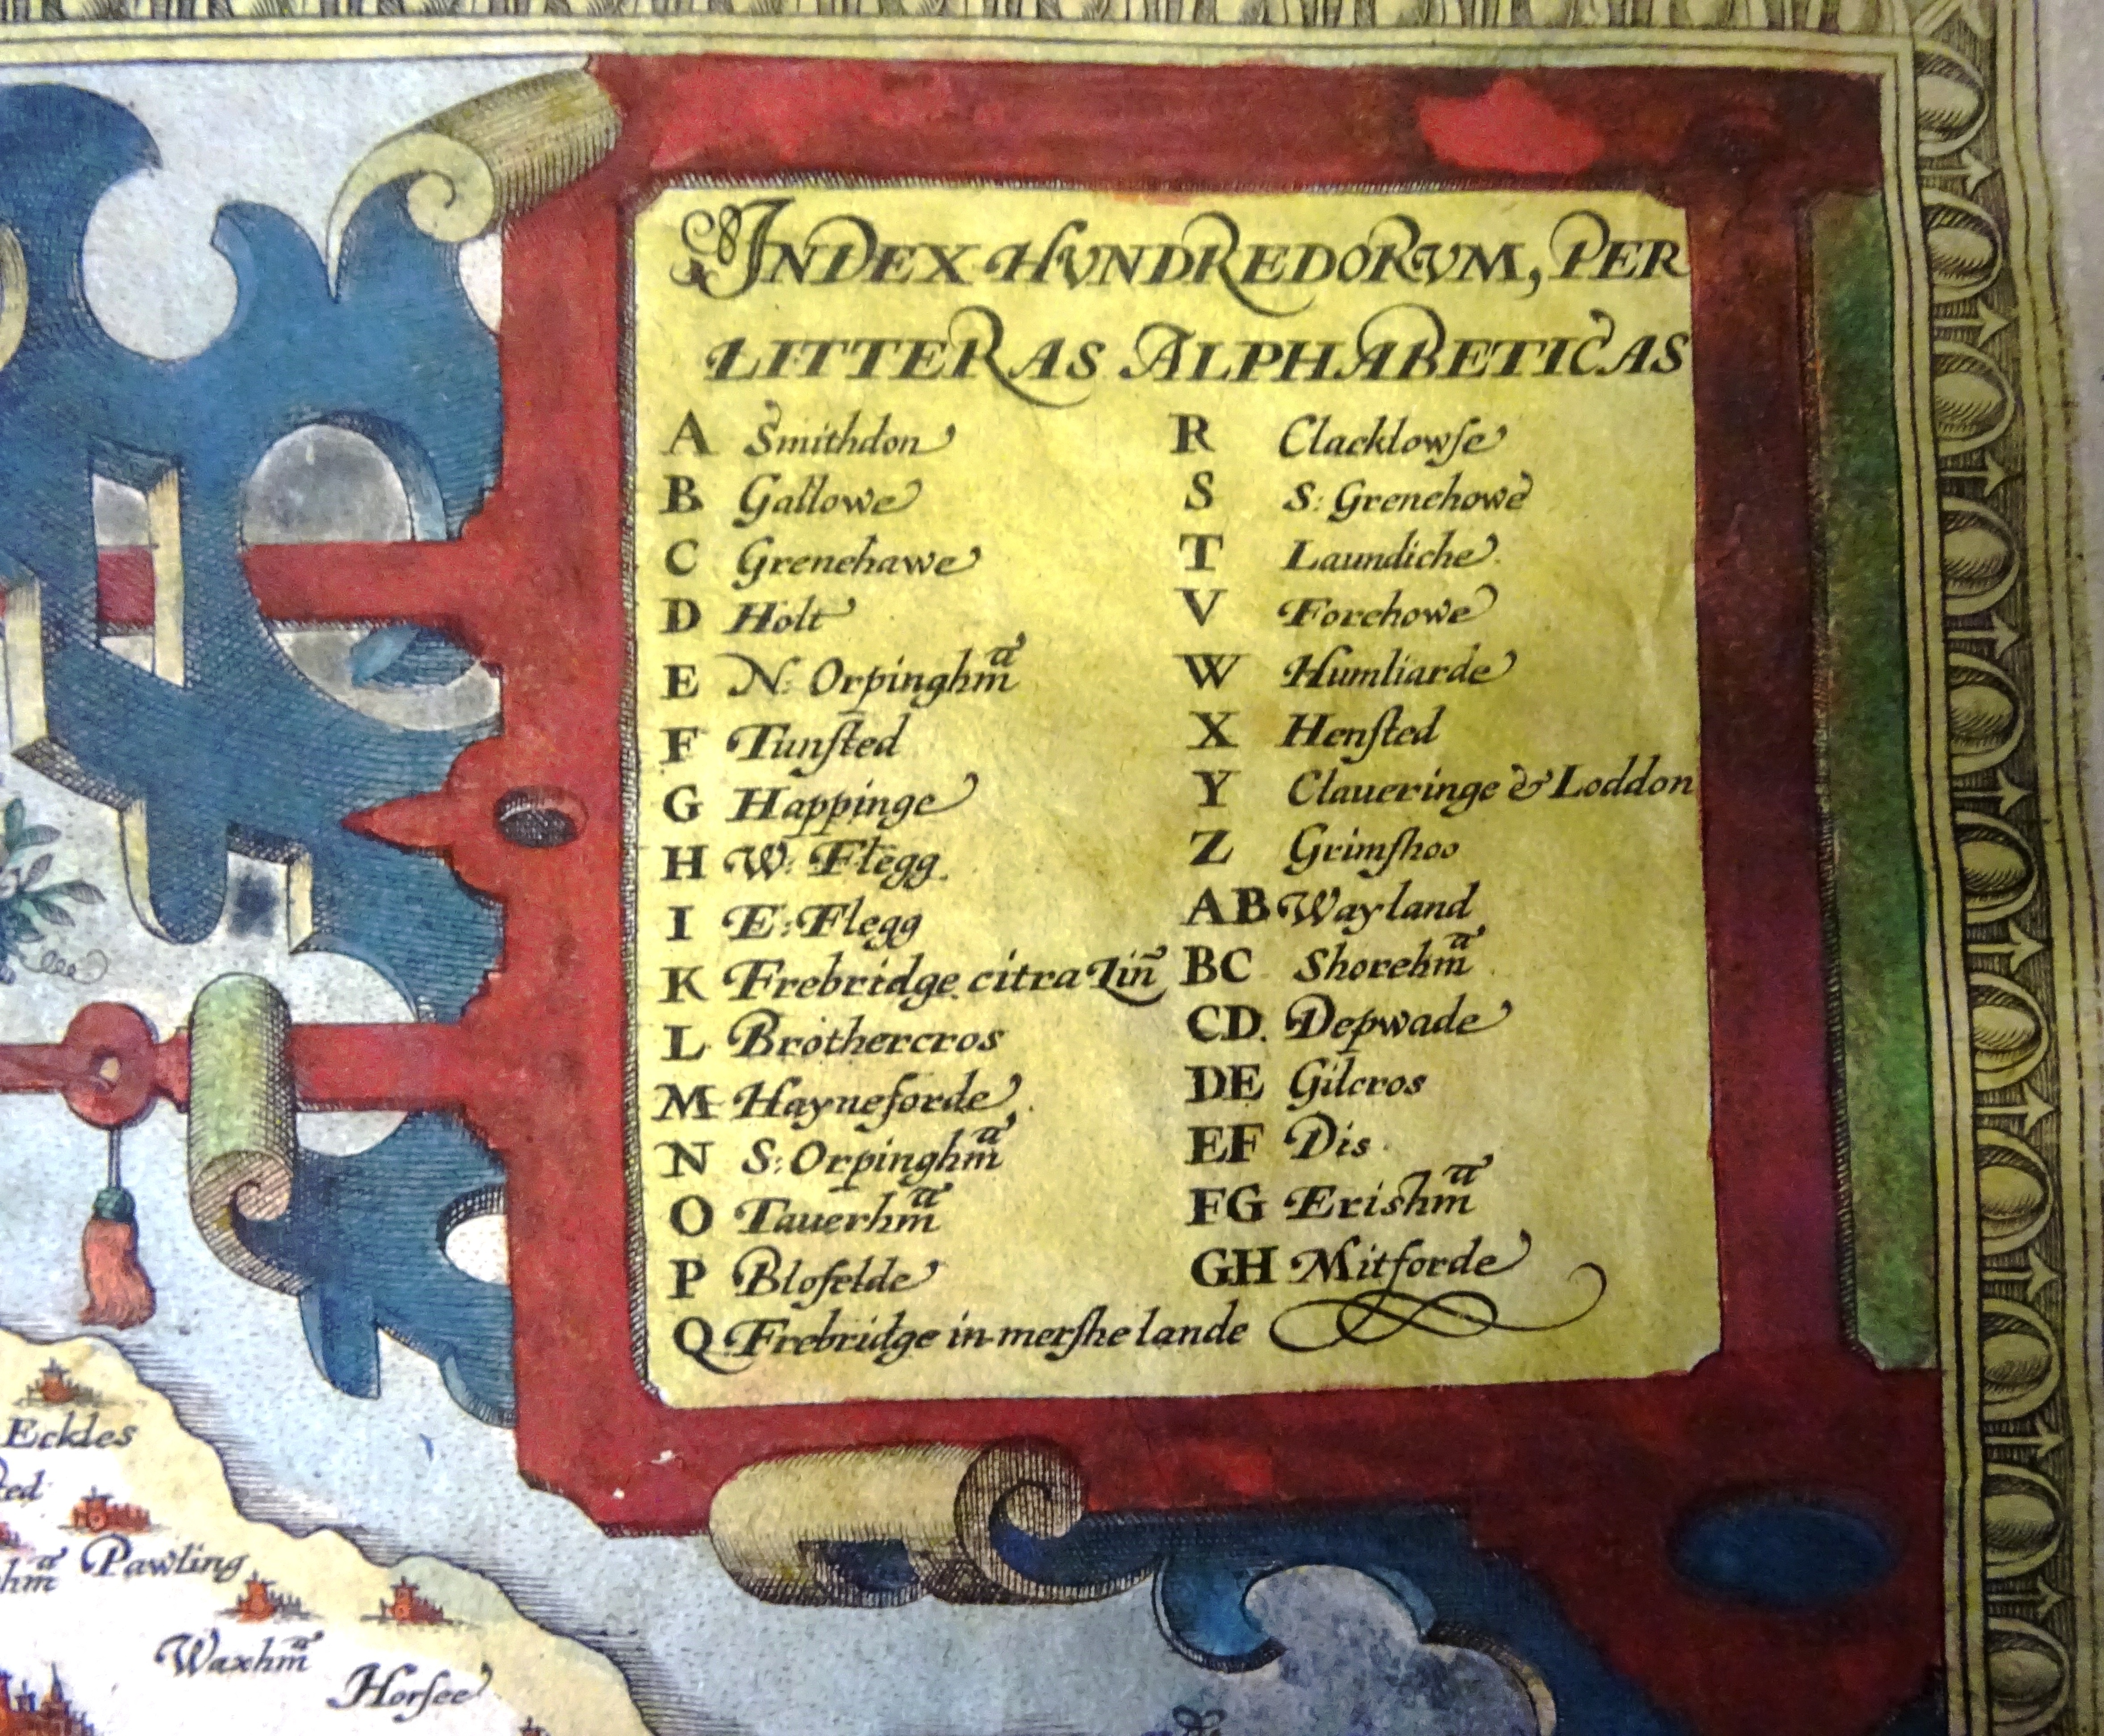 INDEX HVNDREDORVM, PER
LITTERAS ALPHABETICAS
A Smithdon
B Gallowe
C Grenehawe
D Holt
E N: Orpinghm̃ᵃ
F Tunſted
G Happinge
H W: Flegg.
I E: Flegg
K Frebridge citra Lin̄
L Brothercros
M Hayneforde
N S: Orpinghm̃ᵃ
O Tauerhm̃ᵃ
P Blofelde
Q Frebridge in merſhe lande
R Clacklowſe
S S: Grenehowe
T Laundiche
V Forehowe
W Humliarde
X Henſted
Y Claueringe & Loddon
Z Grimſhoo
AB Wayland
BC Shorehm̃ᵃ
CD. Depwade
DE Gilcros
EF Dis
FG Erishm̃ᵃ
GH Mitforde
Eckles
Pawling
Waxhm̃ᵃ
Horſee